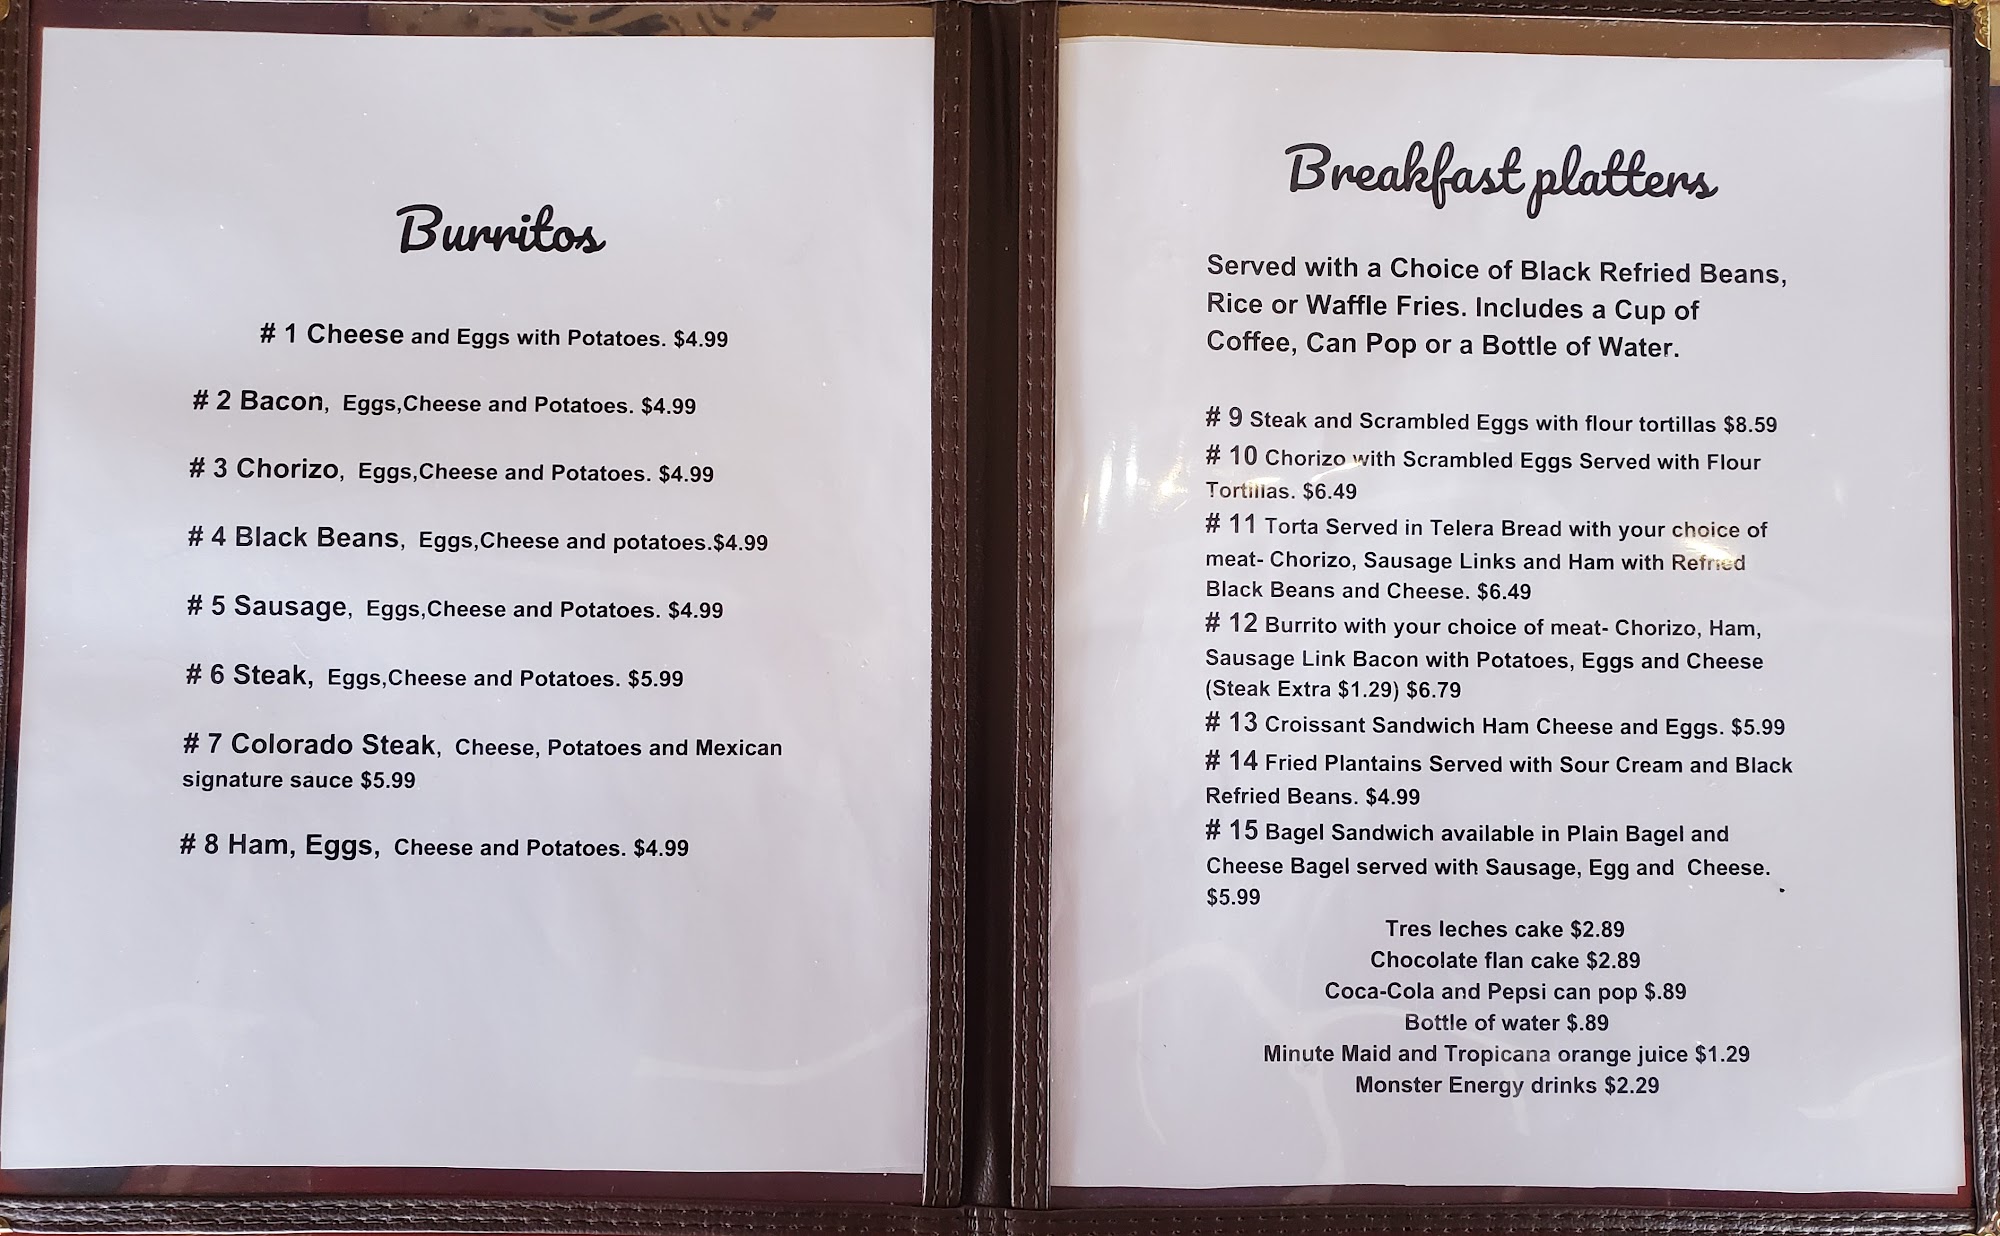 Burritos
# 1 Cheese and Eggs with Potatoes. $4.99
# 2 Bacon, Eggs,Cheese and Potatoes. $4.99
# 3 Chorizo, Eggs,Cheese and Potatoes. $4.99
# 4 Black Beans, Eggs,Cheese and potatoes.$4.99
# 5 Sausage, Eggs,Cheese and Potatoes. $4.99
# 6 Steak, Eggs,Cheese and Potatoes. $5.99
# 7 Colorado Steak, Cheese, Potatoes and Mexican
signature sauce $5.99
# 8 Ham, Eggs, Cheese and Potatoes. $4.99
Breakfast platters
Served with a Choice of Black Refried Beans,
Rice or Waffle Fries. Includes a Cup of
Coffee, Can Pop or a Bottle of Water.
# 9 Steak and Scrambled Eggs with flour tortillas $8.59
# 10 Chorizo with Scrambled Eggs Served with Flour
Tortillas. $6.49
# 11 Torta Served in Telera Bread with your choice of
meat- Chorizo, Sausage Links and Ham with Refried
Black Beans and Cheese. $6.49
# 12 Burrito with your choice of meat- Chorizo, Ham,
Sausage Link Bacon with Potatoes, Eggs and Cheese
(Steak Extra $1.29) $6.79
# 13 Croissant Sandwich Ham Cheese and Eggs. $5.99
# 14 Fried Plantains Served with Sour Cream and Black
Refried Beans. $4.99
# 15 Bagel Sandwich available in Plain Bagel and
Cheese Bagel served with Sausage, Egg and Cheese.
$5.99
Tres leches cake $2.89
Chocolate flan cake $2.89
Coca-Cola and Pepsi can pop $.89
Bottle of water $.89
Minute Maid and Tropicana orange juice $1.29
Monster Energy drinks $2.29